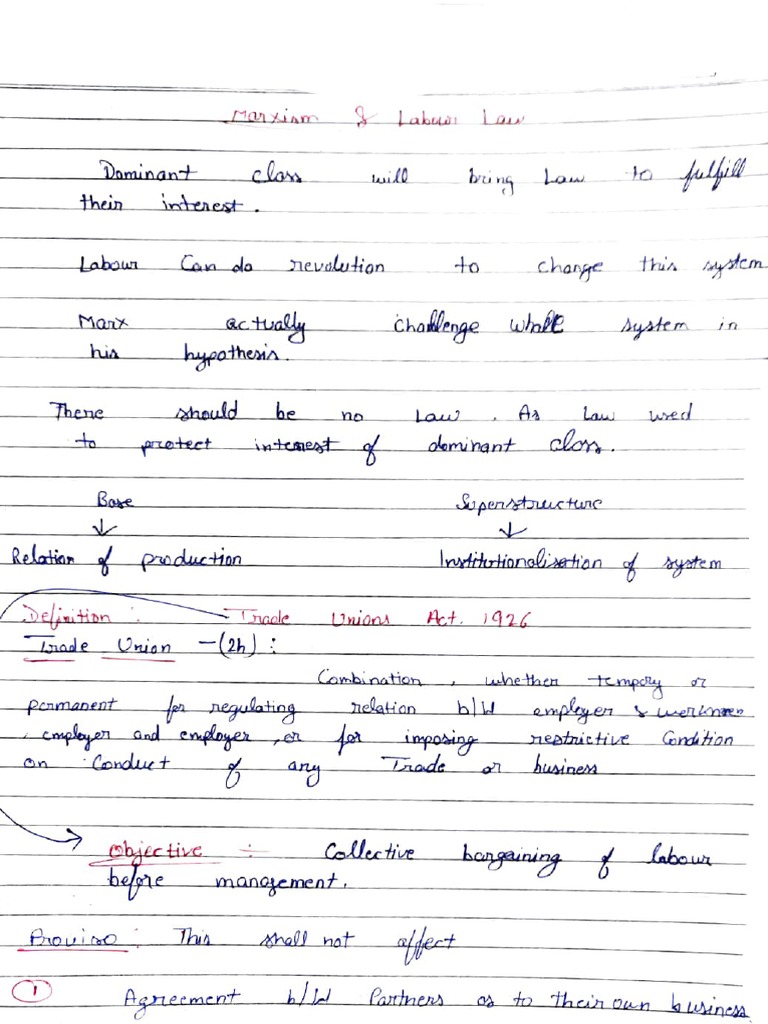 Marxism & Labour Law
Dominant class will bring Law to fulfill
their interest.
Labour Can do revolution to change this system
Marx actually challenge whole system in
his hypothesis.
There should be no Law. As Law used
to protect interest of dominant class.
Base Superstructure
↓ ↓
Relation of production Institutionalisation of system
Definition : Trade Unions Act. 1926
Trade Union -(2h) :
Combination, whether tempory or
permanent for regulating relation b/w employer & workmen
, employer and employer, or for imposing restrictive Condition
on Conduct of any Trade or business
Objective :- Collective bargaining of labour
before management.
Proviso : This shall not affect
1 Agreement b/w Partners as to their own business